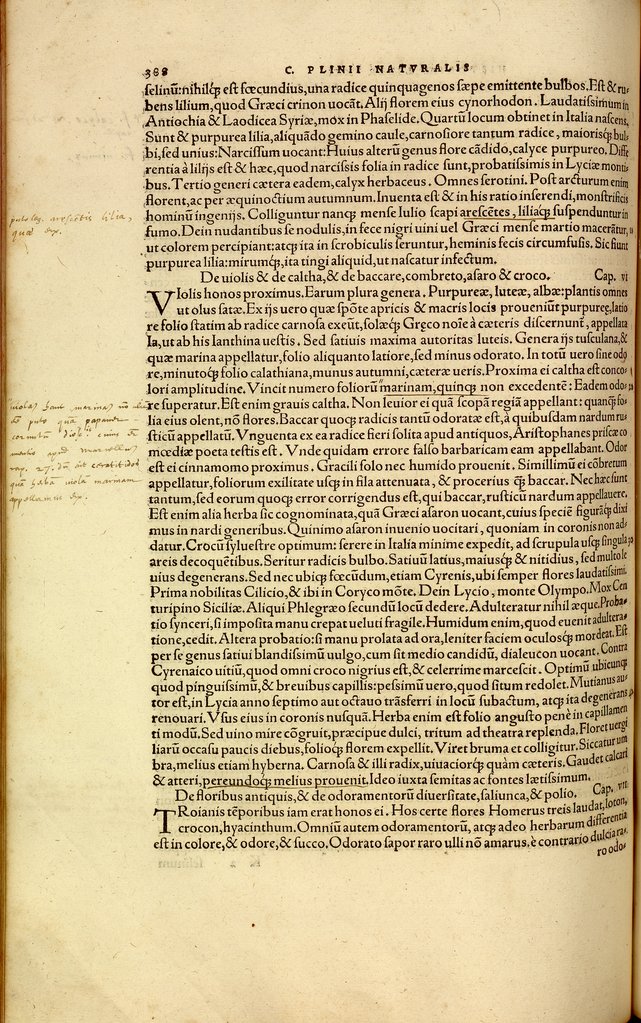 388 C. PLINII NATVRALIS
selinū: nihilq̃ est fœcundius, una radice quinquagenos sæpe emittente bulbos. Est & ru-
bens lilium, quod Græci crinon uocāt. Alij florem eius cynorhodon. Laudatissimum in
Antiochia & Laodicea Syriæ, mox in Phaselide. Quartū locum obtinet in Italia nascens.
Sunt & purpurea lilia, aliquādo gemino caule, carnosiore tantum radice, maiorisq̃ bul-
bi, sed unius: Narcissum uocant: Huius alterū genus flore cādido, calyce purpureo. Diffe
rentia à lilijs est & hæc, quod narcissis folia in radice sunt, probatissimis in Lyciæ monti-
bus. Tertio generi cætera eadem, calyx herbaceus. Omnes serotini. Post arcturum enim
florent, ac per æquinoctium autumnum. Inuenta est & in his ratio inserendi, monstrificis
hominū ingenijs. Colliguntur nanq̃ mense Iulio scapi arescētes, liliaq̃ suspenduntur in
fumo. Dein nudantibus se nodulis, in fece nigri uini uel Græci mense martio macerātur,
ut colorem percipiant: atq̃ ita in scrobiculis seruntur, heminis fecis circumfusis. Sic fiunt
purpurea lilia: mirumq̃, ita tingi aliquid, ut nascatur infectum.
De uiolis & de caltha, & de baccare, combreto, asaro & croco. Cap. vi
VIolis honos proximus. Earum plura genera. Purpureæ, luteæ, albæ: plantis omnes
ut olus satæ. Ex ijs uero quæ spōte apricis & macris locis proueniūt purpureę, latio
re folio statim ab radice carnosa exeūt, solæq̃ Gręco noīe à cæteris discernunt, appellata
Ia, ut ab his Ianthina uestis. Sed satiuis maxima autoritas luteis. Genera ijs tusculana, &
quæ marina appellatur, folio aliquanto latiore, sed minus odorato. In totū uero sine odo
re, minutoq̃ folio calathiana, munus autumni, cæteræ ueris. Proxima ei caltha est conco
lori amplitudine. Vincit numero foliorū marinam, quinq̃ non excedentē: Eadem odo-
re superatur. Est enim grauis caltha. Non leuior ei quā scopā regiā appellant: quanq̃ fo-
lia eius olent, nō flores. Baccar quoq̃ radicis tantū odoratæ est, à quibusdam nardum ru-
sticū appellatum. Vnguenta ex ea radice fieri solita apud antiquos, Aristophanes priscæ co
mœdiæ poeta testis est. Vnde quidam errore falso barbaricam eam appellabant. Odor
est ei cinnamomo proximus. Gracili solo nec humido prouenit. Simillimū ei cōbretum
appellatur, foliorum exilitate usq̃ in fila attenuata, & procerius q̃ baccar. Nec hæc sunt
tantum, sed eorum quoq̃ error corrigendus est, qui baccar, rusticū nardum appellauere.
Est enim alia herba sic cognominata, quā Græci asaron uocant, cuius speciē figurāq̃ dixi
mus in nardi generibus. Quinimo asaron inuenio uocitari, quoniam in coronis non ad-
datur. Crocū syluestre optimum: serere in Italia minime expedit, ad scrupula usq̃ singula
areis decoquētibus. Seritur radicis bulbo. Satiuū latius, maiusq̃ & nitidius, sed multo le
uius degenerans. Sed nec ubiq̃ fœcūdum, etiam Cyrenis, ubi semper flores laudatissimi.
Prima nobilitas Cilicio, & ibi in Coryco mōte. Dein Lycio, monte Olympo. Mox Cen
turipino Siciliæ. Aliqui Phlegræo secundū locū dedere. Adulteratur nihil æque. Proba-
tio synceri, si imposita manu crepat ueluti fragile. Humidum enim, quod euenit adultera-
tione, cedit. Altera probatio: si manu prolata ad ora, leniter faciem oculosq̃ mordeat. Est
per se genus satiui blandissimū uulgo, cum sit medio candidū, dialeucon uocant. Contra
Cyrenaico uitiū, quod omni croco nigrius est, & celerrime marcescit. Optimū ubicunq̃
quod pinguissimū, & breuibus capillis: pessimū uero, quod situm redolet. Mutianus au-
tor est, in Lycia anno septimo aut octauo trāsferri in locū subactum, atq̃ ita degenerans
renouari. Vsus eius in coronis nusquā. Herba enim est folio angusto penè in capillamen
ti modū. Sed uino mire cōgruit, præcipue dulci, tritum ad theatra replenda. Floret uergi
liarū occasu paucis diebus, folioq̃ florem expellit. Viret bruma et colligitur. Siccatur um
bra, melius etiam hyberna. Carnosa & illi radix, uiuaciorq̃ quàm cæteris. Gaudet calcari
& atteri, pereundoq̃ melius prouenit. Ideo iuxta semitas ac fontes lætissimum.
De floribus antiquis, & de odoramentorū diuersitate, saliunca, & polio. Cap. vii
TRoianis tēporibus iam erat honos ei. Hos certe flores Homerus treis laudat, loton,
crocon, hyacinthum. Omniū autem odoramentorū, atq̃ adeo herbarum differentia
est in colore, & odore, & succo. Odorato sapor raro ulli nō amarus. è contrario dulcia ra-
ro odo-
arescētis lilia,
quæ